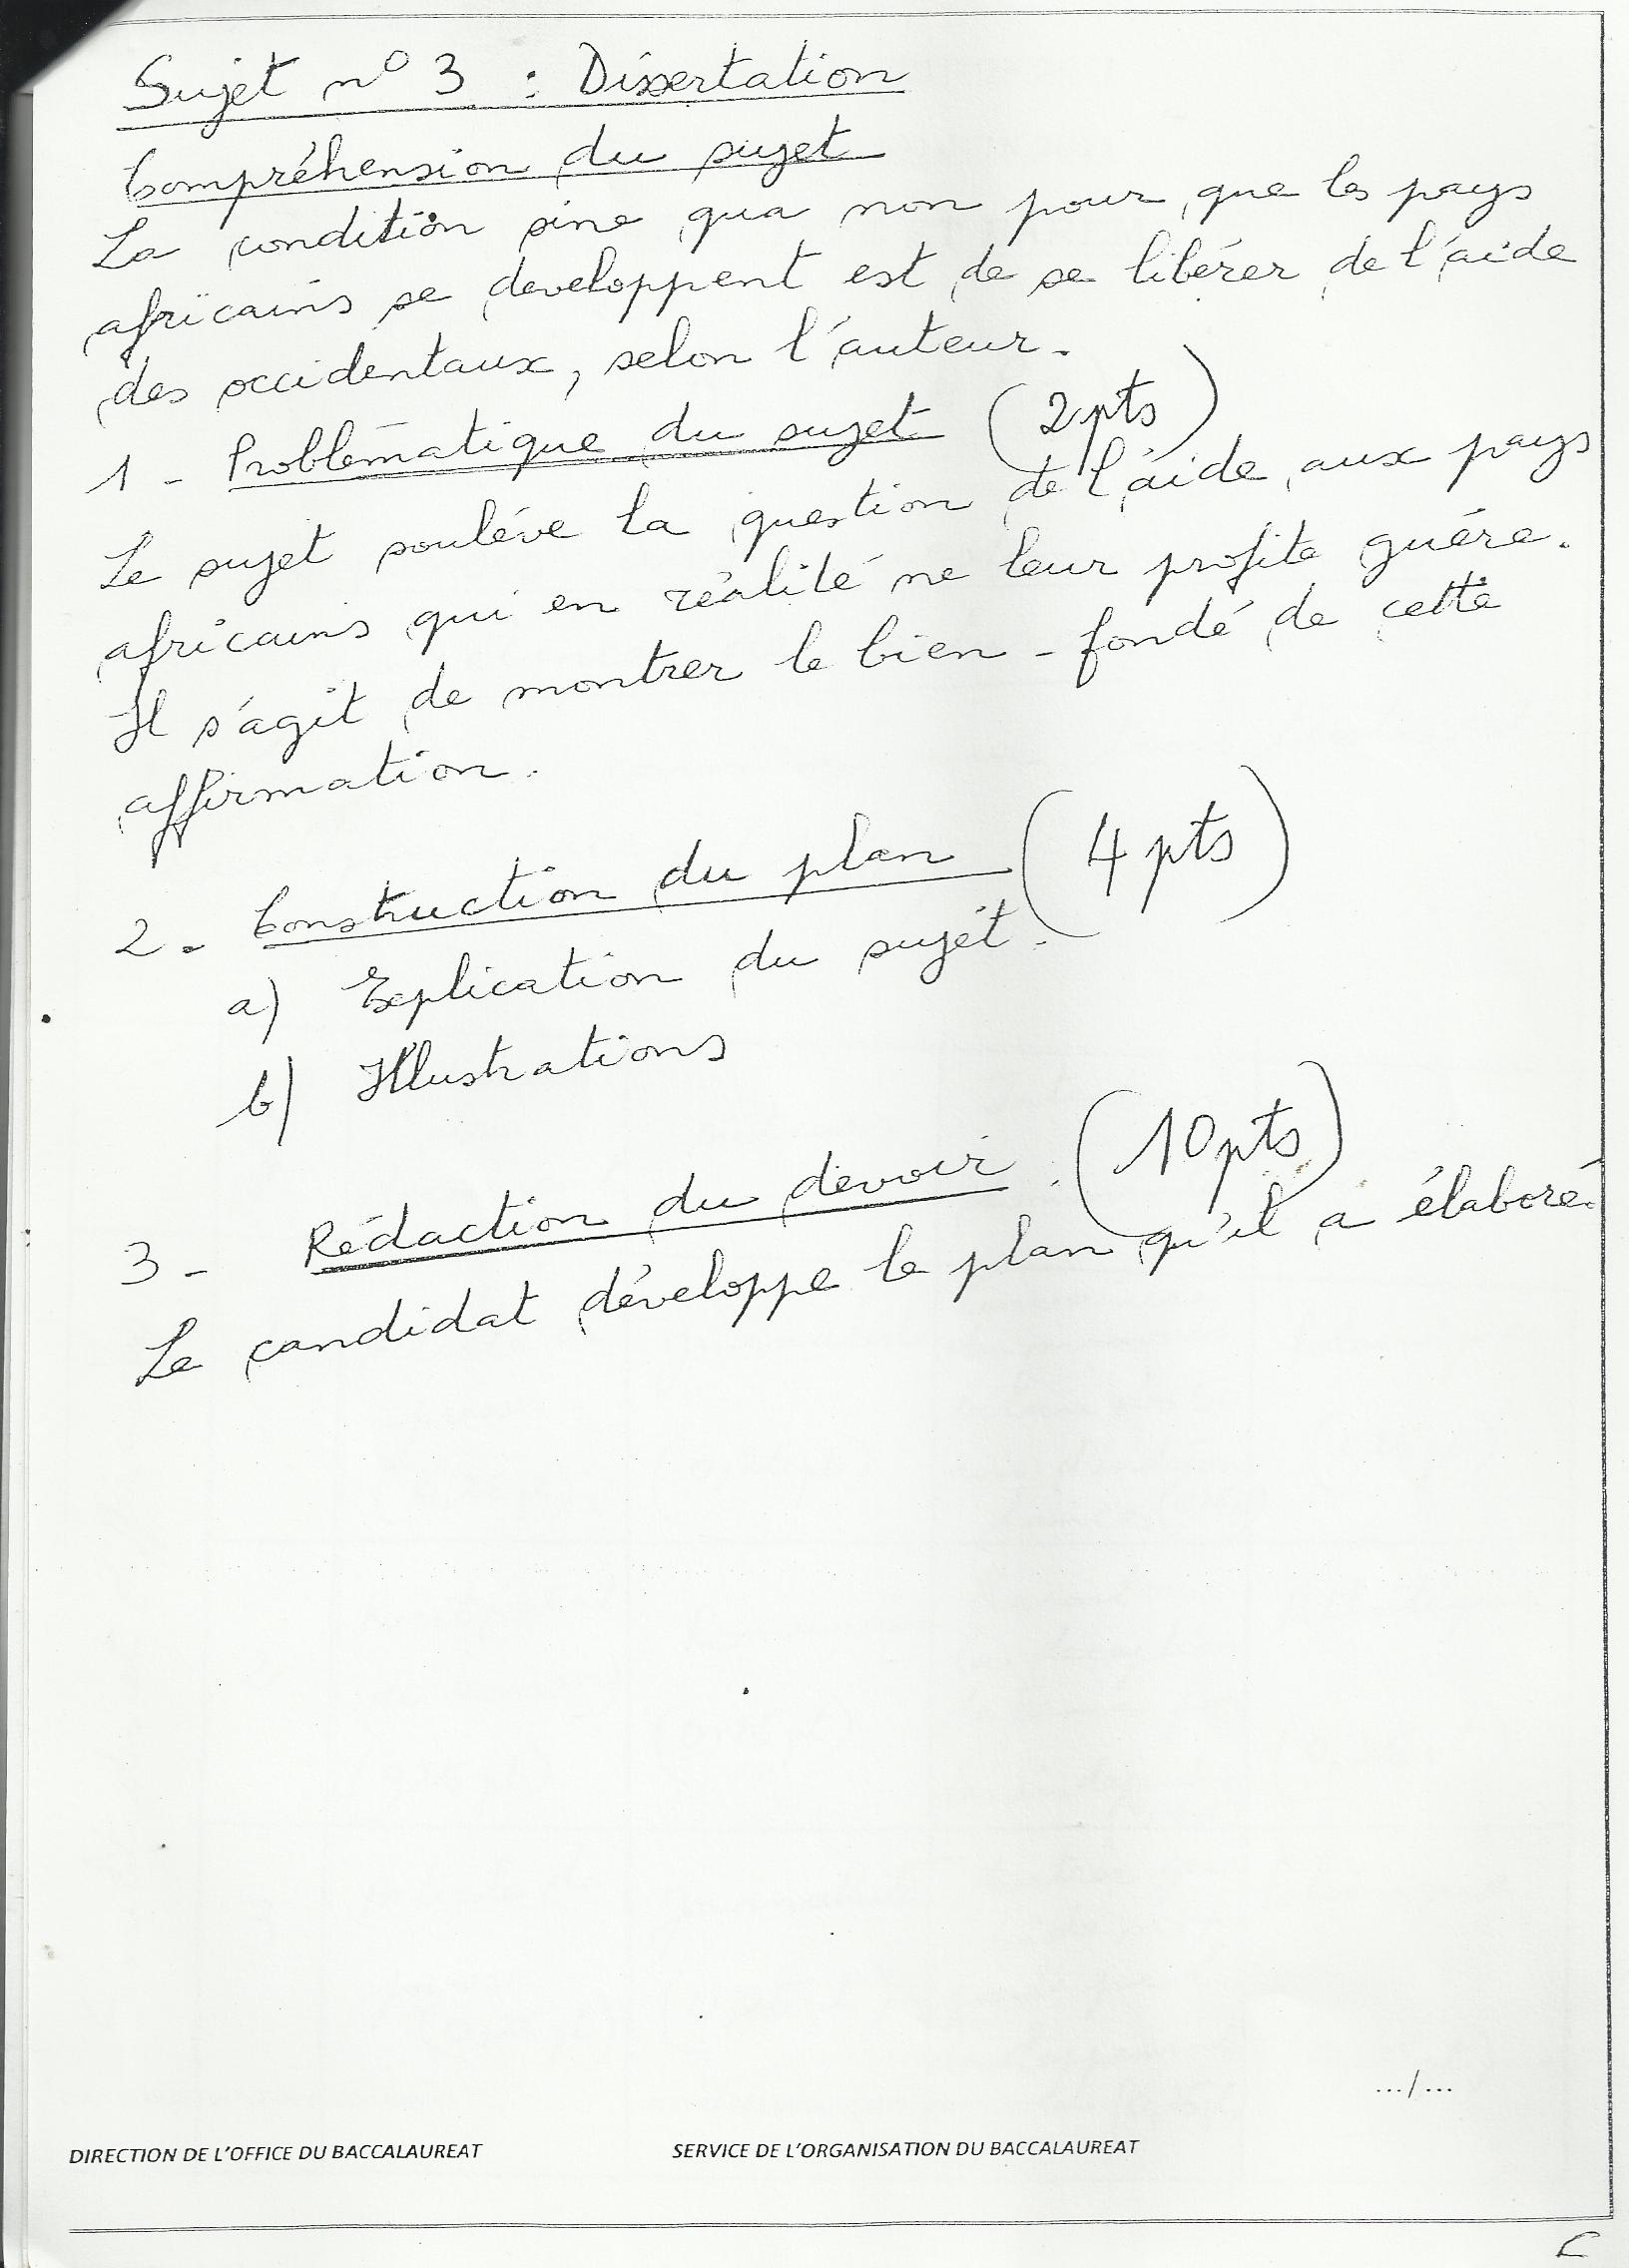 Sujet n° 3 : Dissertation
Compréhension du sujet
La condition sine qua non pour que les pays
africains se developpent est de se libérer de l'aide
des occidentaux, selon l'auteur.
1 - Problématique du sujet (2pts)
Le sujet soulève la question de l'aide aux pays
africains qui en réalité ne leur profite guère.
Il s'agit de montrer le bien-fondé de cette
affirmation.
2 - Construction du plan (4 pts)
a) Explication du sujet.
b) Illustrations
3 - Rédaction du devoir. (10pts)
Le candidat développe le plan qu'il a élaboré.
.../...
DIRECTION DE L'OFFICE DU BACCALAUREAT SERVICE DE L'ORGANISATION DU BACCALAUREAT